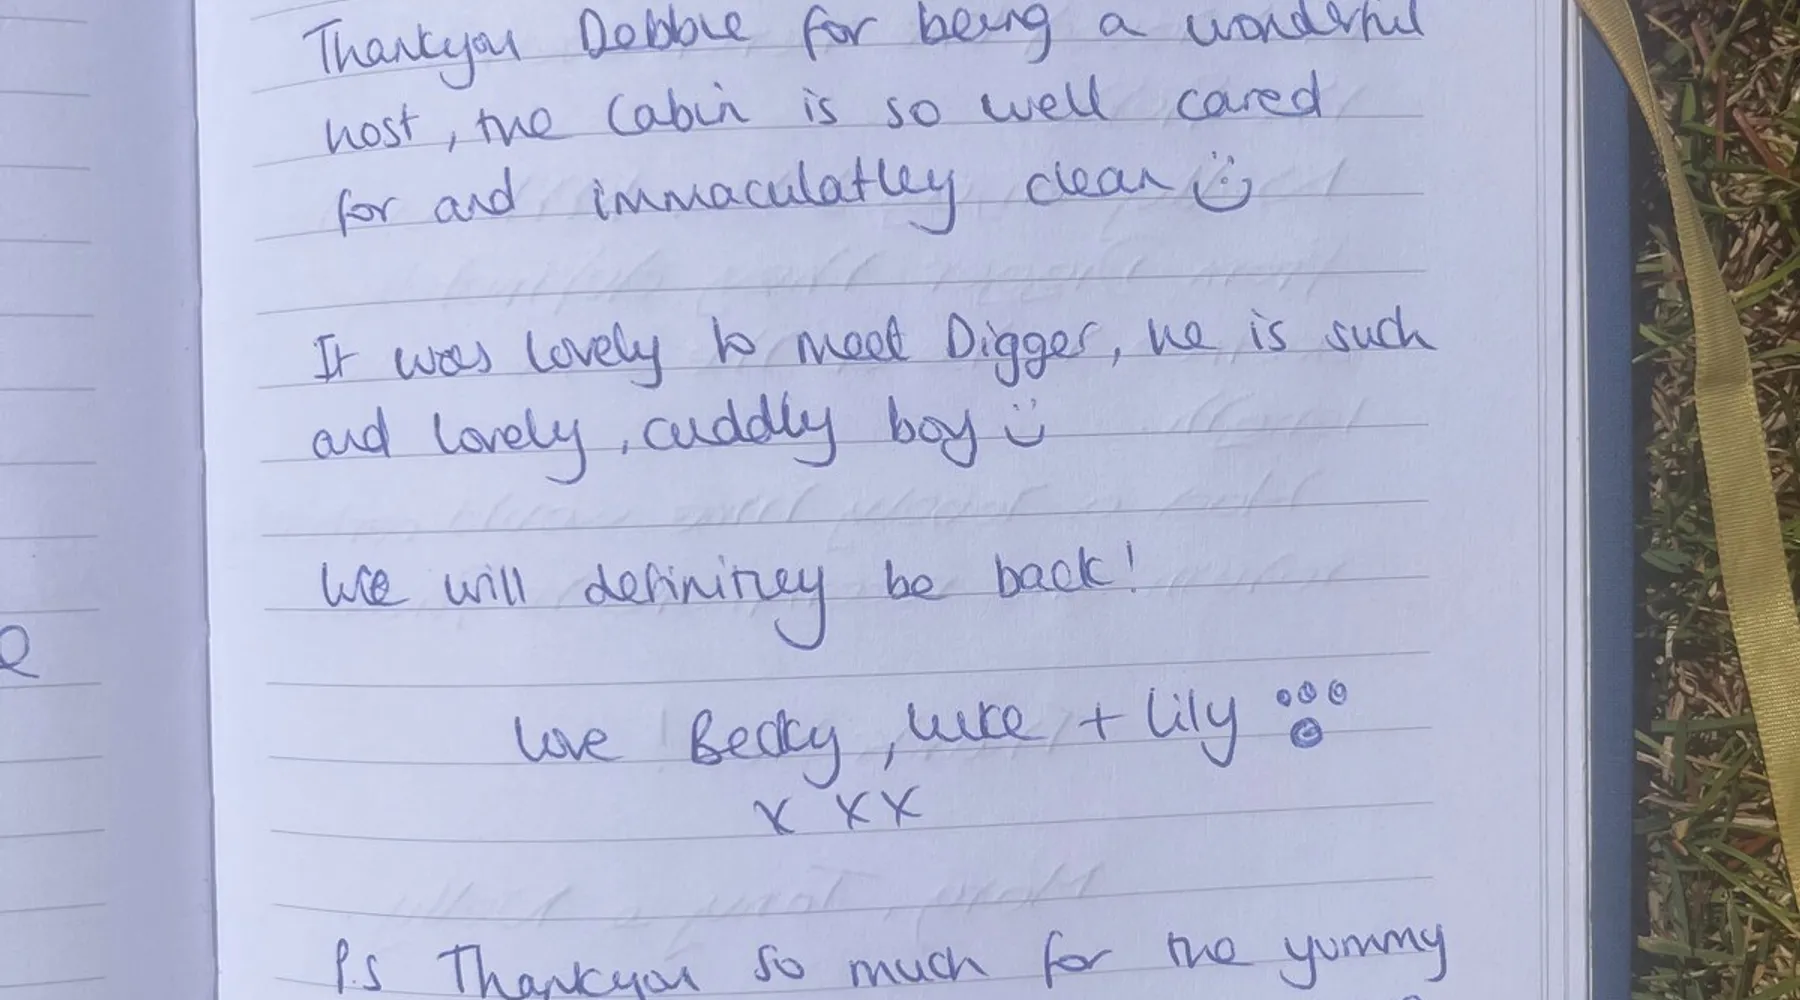 Thankyou Debbie for being a wonderful
host, the Cabin is so well cared
for and immaculatley clean
It was lovely to meet Digger, he is such
and lovely, cuddly boy
We will definitley be back!
love Becky, Luke + Lily
x xx
P.S Thankyou so much for the yummy